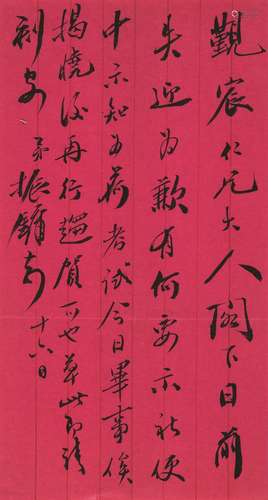 觀宸仁兄大人閣下日前
失迎為歉有何要示祈便
中示知為荷考試今日畢事俟
揭曉後再行趨賀可也草此即請
刻安 弟振鏞頓
十六日